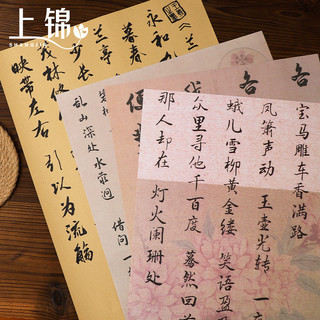 上锦
SHANGJIN
永和九
暮春
兰亭
少长
茂林修
映带左右 引以为流觞
借问一
乱山深处水萦洄
宝马雕车香满路
凤箫声动 玉壶光转 一
蛾儿雪柳黄金缕 笑语盈
众里寻他千百度 蓦然回
那人却在 灯火阑珊处